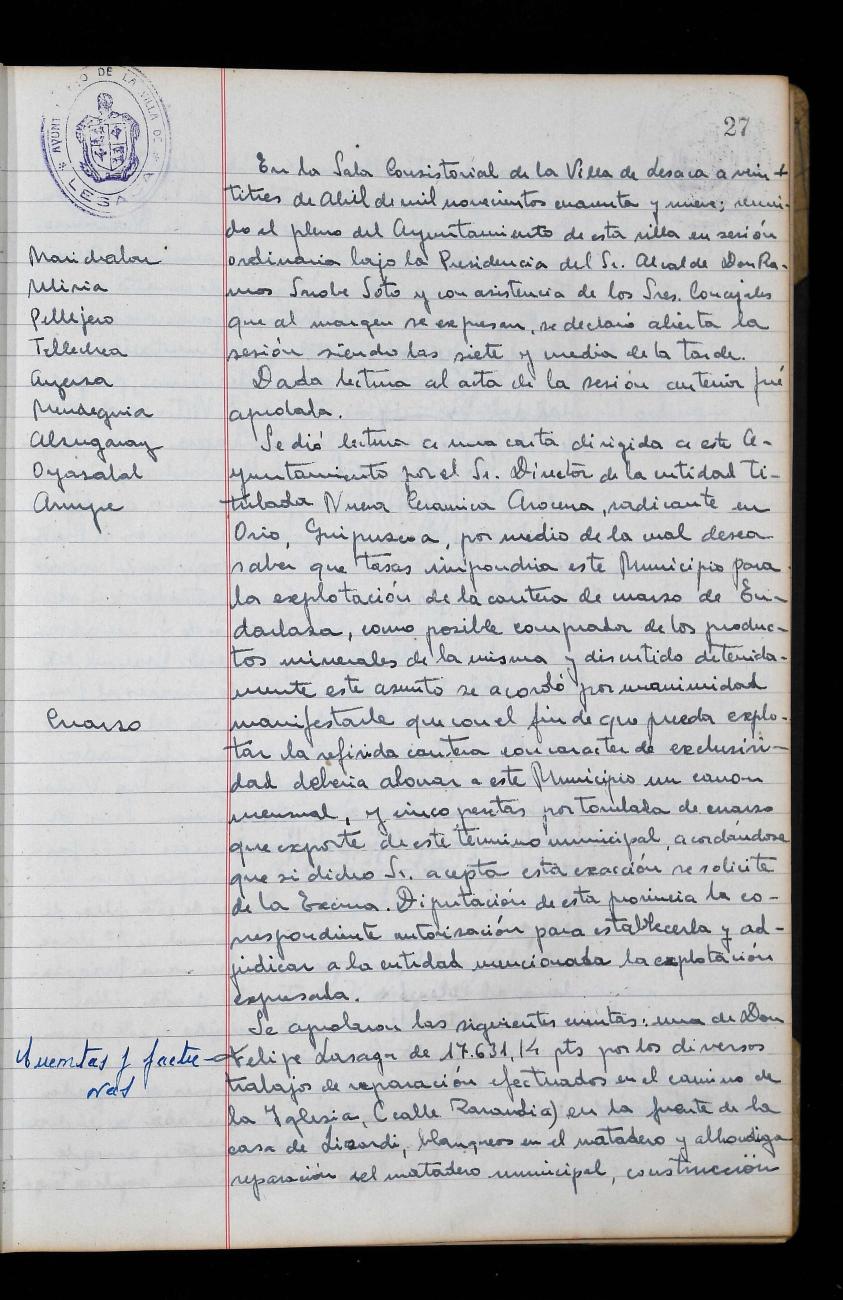 AYUNTAMIENTO DE LA VILLA DE
* LESACA *
27
En la Sala Consistorial de la Villa de Lesaca a vein-
titres de Abril de mil novecientos cuarenta y nueve; reuni-
do el pleno del Ayuntamiento de esta villa en sesión
Marichalar ordinaria bajo la Presidencia del Sr. Alcalde Don Ra-
mos Soto y con asistencia de los Sres. Concejales
Pellejero que al margen se expresan, se declaró abierta la
Tellechea sesión siendo las siete y media de la tarde.
Dada lectura al acta de la sesión anterior fué
Mendeguia aprobada.
Alzugaray Se dió lectura a una carta dirigida a este A-
Oyarzabal yuntamiento por el Sr. Director de la entidad ti-
tulada Nueva Ceramica Arocena, radicante en
Orio, Guipuzcoa, por medio de la cual desea
saber que tasas impondria este Municipio para
la explotación de la cantera de cuarzo de En-
darlaza, como posible comprador de los produc-
tos minerales de la misma y discutido detenida-
mente este asunto se acordó por unanimidad
Cuarzo manifestarle que con el fin de que pueda explo-
tar la referida cantera con caracter de exclusivi-
dad deberia abonar a este Municipio un canon
mensual, y cinco pesetas por tonelada de cuarzo
que exporte de este término municipal, acordándose
que si dicho Sr. acepta esta exacción se solicite
de la Excma. Diputación de esta provincia la co-
rrespondiente autorización para establecerla y ad-
judicar a la entidad mencionada la explotación
expresada.
Se aprobaron las siguientes cuentas: una de Don
Cuentas y factu- Felipe Lasaga de 17.631,14 pts por los diversos
ras trabajos de reparación efectuados en el camino de
la Yglesia, (calle Zarandia) en la fuente de la
casa de Lizardi, blanqueos en el matadero y alhondiga
reparación del matadero municipal, construcción